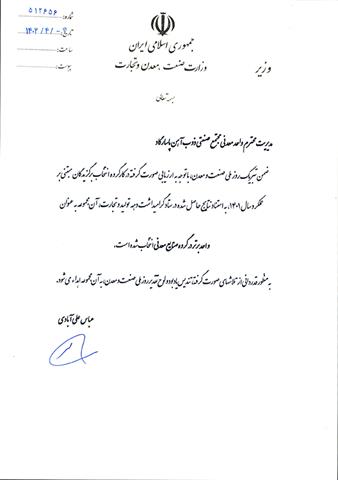 شماره: ۵۱۲۶۵۶
تاریخ: ۱۴۰۲/۴/۰۸
ساعت:
پیوست:
جمهوری اسلامی ایران
وزارت صنعت، معدن و تجارت
وزیر
بسمه تعالی
مدیریت محترم واحد معدنی مجتمع صنعتی ذوب آهن پاسارگاد
ضمن تبریک روز ملی صنعت و معدن، با توجه به ارزیابی صورت گرفته در کارگروه انتخاب برگزیدگان مبتنی بر
عملکرد سال ۱۴۰۱، به استناد نتایج حاصل شده در ستاد گرامیداشت دهه تولید و تجارت، آن مجموعه به عنوان
واحد برتر در گروه صنایع معدنی انتخاب شده است.
به منظور قدردانی از تلاشهای صورت گرفته تندیس یادبود و لوح تقدیر روز ملی صنعت و معدن، به آن مجموعه اهداء می شود.
عباس علی آبادی